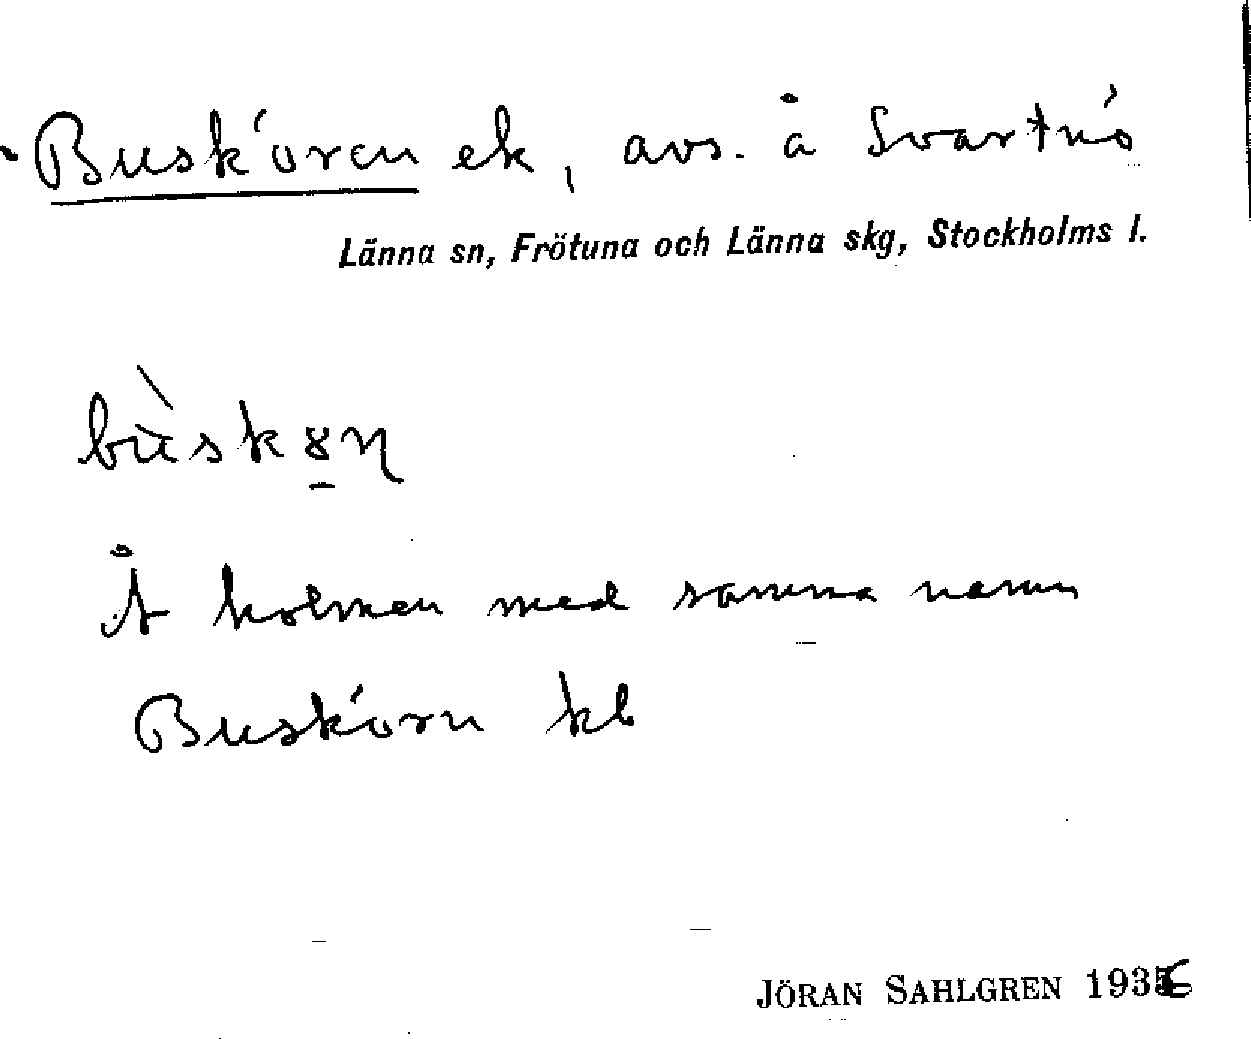 Busköven ek, avs. å Svartnö
Länna sn, Frötuna och Länna skg, Stockholms l.
Å holmen med samma namn
kb
JÖRAN SAHLGREN 1936